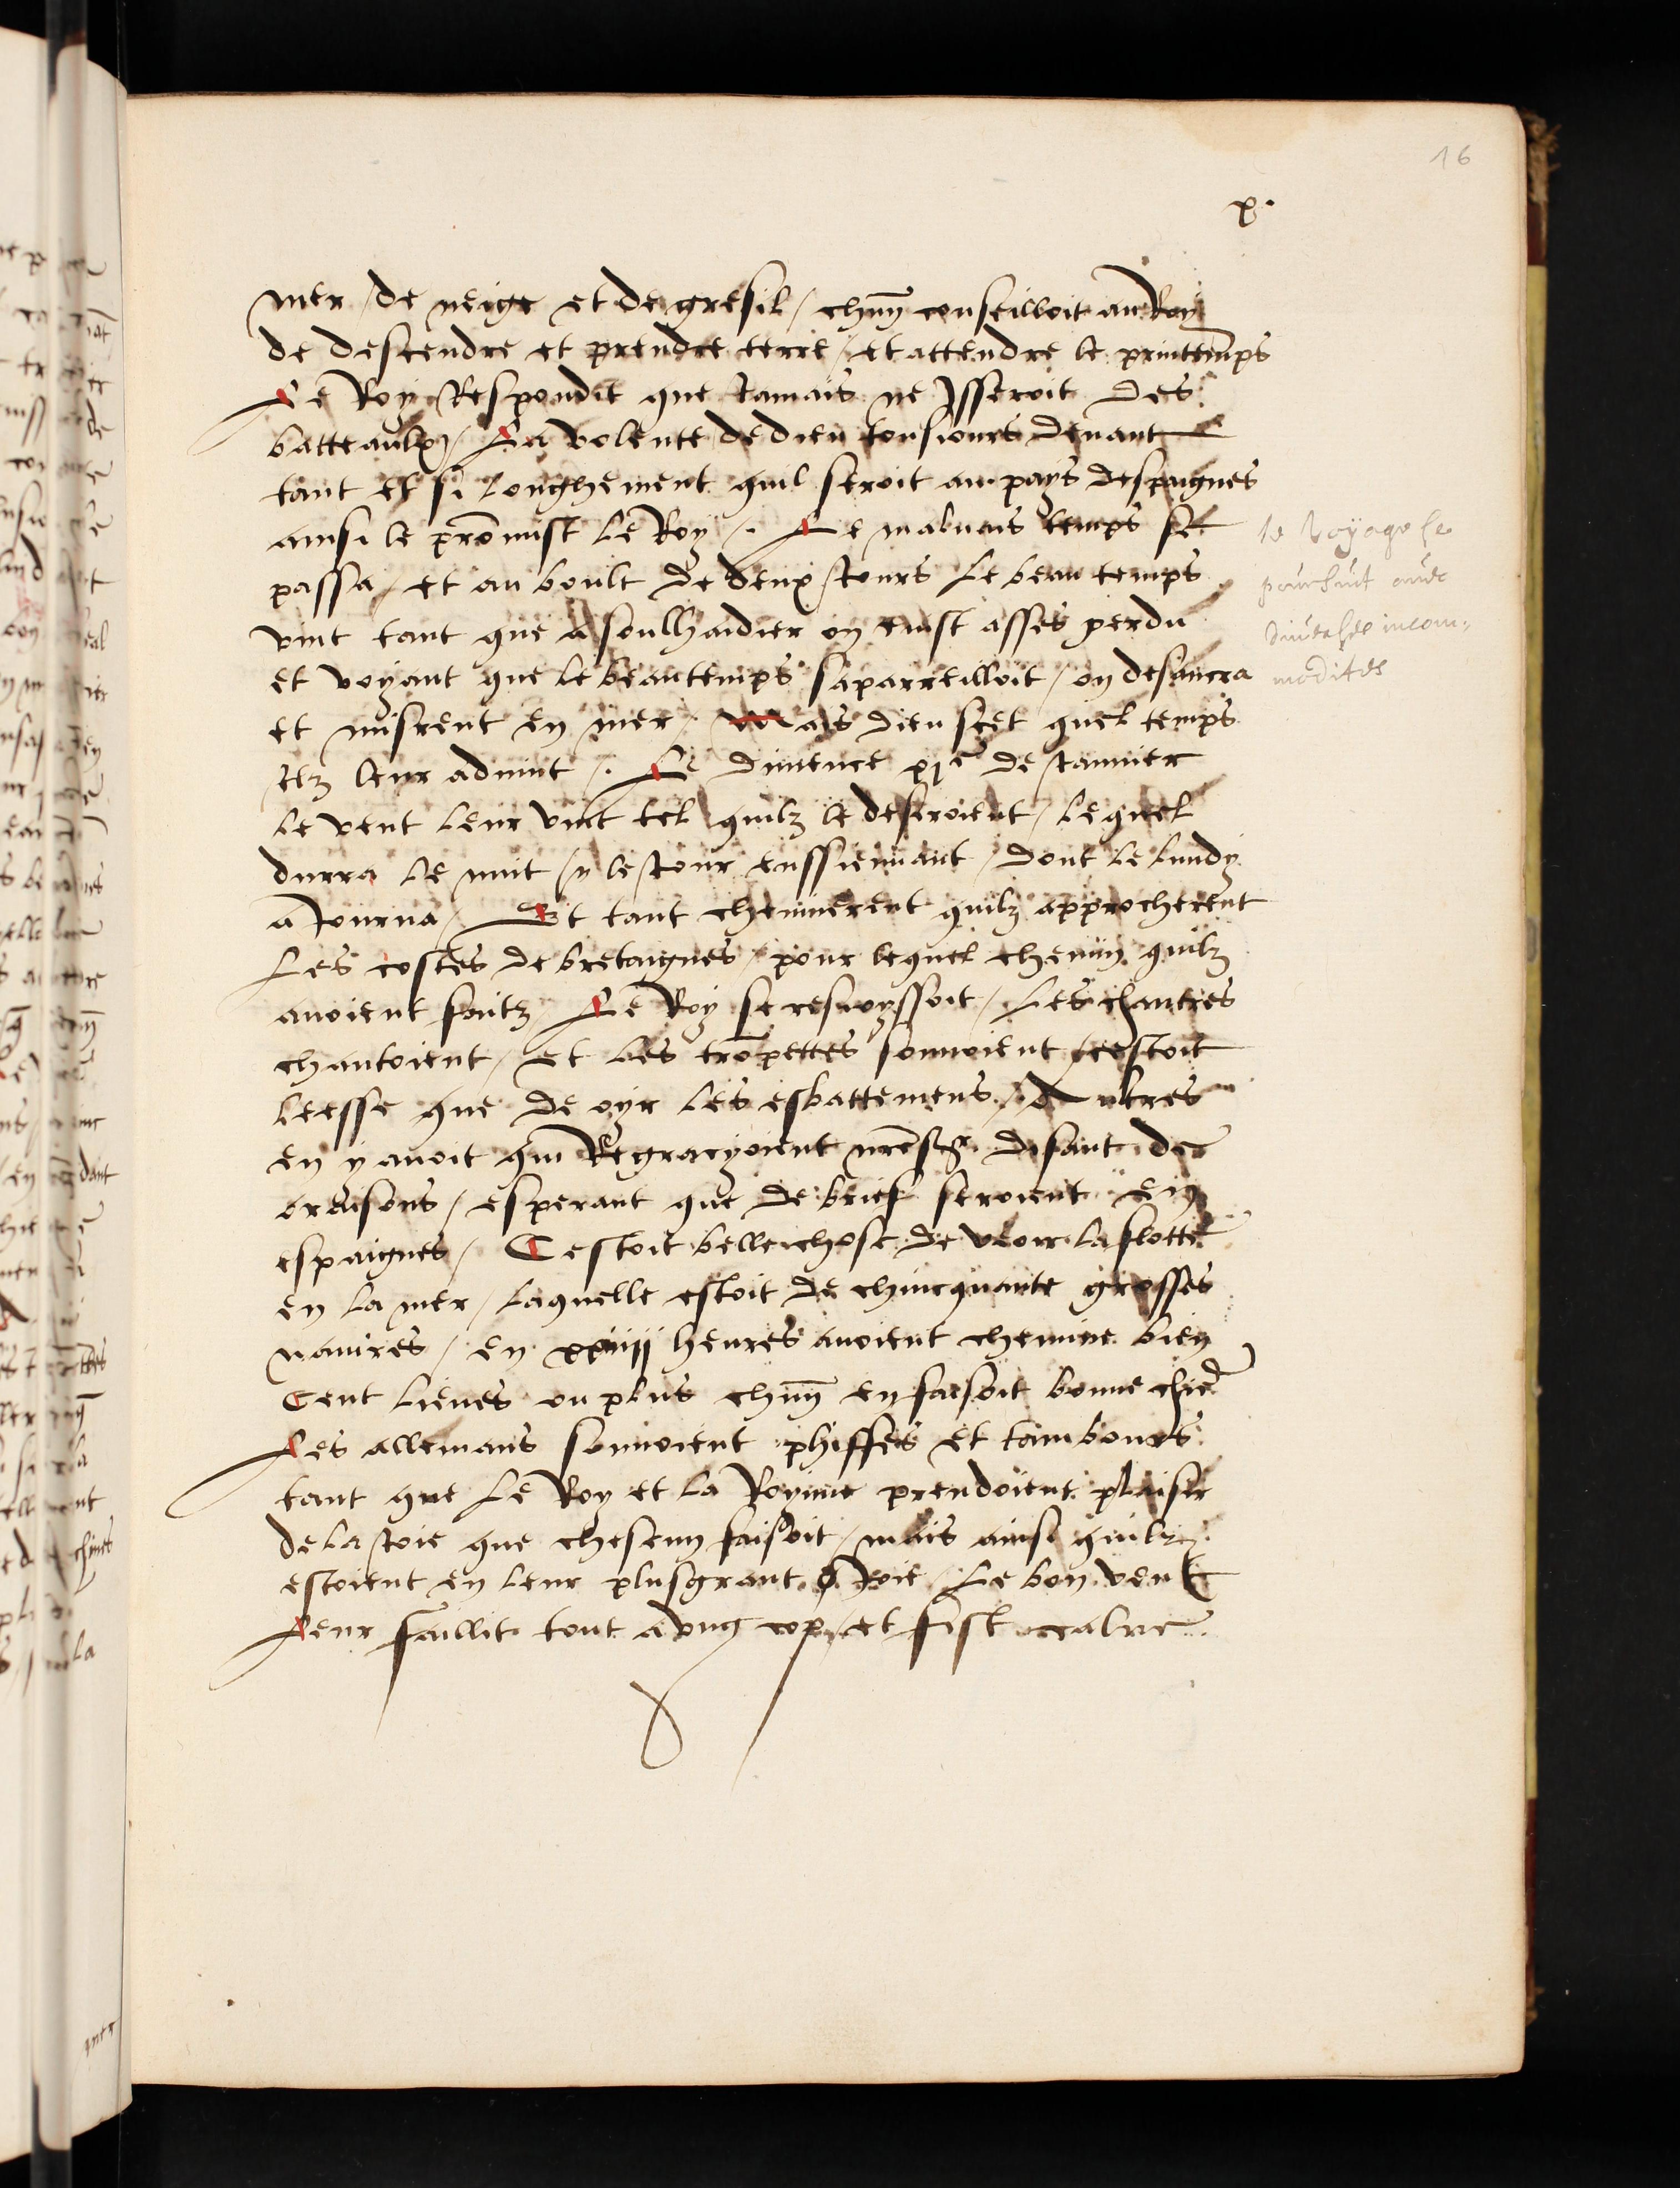 16
x.
mer / de neige et de gresil / chũn conseilloit au Roy
de descendre et prendre terre / et attendre le printemps
Le Roy Respondit que Jamais ne Isseroit des
batteaulx / La volente de dieu tousiours deuant
tant et si longhement quil seroit au pays despaignes
ainsi le prõmist le Roy /. Le maluais temps se
passa / et au boult de deux Jours le beau temps
vint tant que a soulhaidier on eust asses perdu
et voyant que le beau temps saparreilloit / on desancra
et misrent en mer / Mais dieu scet quel temps
Ilz leur aduint /. Le dimence xje de Januier
le vent leur vint tel quilz le desiroient / lequel
durra le nuit / y le Jour enssieuuant / dont le lundy
aJourna / Et tant cheminerent quilz approcherent
les costes de bretaignes / pour lequel chemin quilz
auoient faitz Le Roy se resioyssoit / les chantres
chantoient / et les trõpettes sonnoient / cestoit
leesse que de oyr les esbattemens / Aultres
en y auoit qui Regracyoient nrẽ sgr disant des
oroisons / esperant que de brief seroient en
espaignes / Cestoit belle chose de veoir la flotte
en la mer / laquelle estoit de chincquante grosses
nauires / en xxiiij heures auoient chemine bien
Cent lieues ou plus chũn en faisoit bonne chiere
Les allemans sonnoient phiffes et tambours
tant que le Roy et la Royune prendoient plaisir
de la Joie que chescun faisoit / mais ainsi quilz
estoient en leur plus grant Joie / le bon vent
leur faillit tout a vng cop / et fist calme
le voyage se
poursuit auec
diuerses incom=
modites